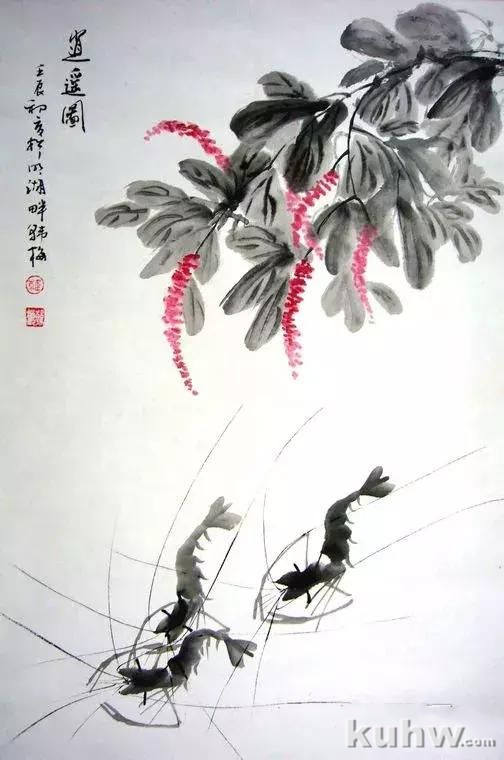 逍遥圖
壬辰初夏於明湖畔韩梅
kuhw.com